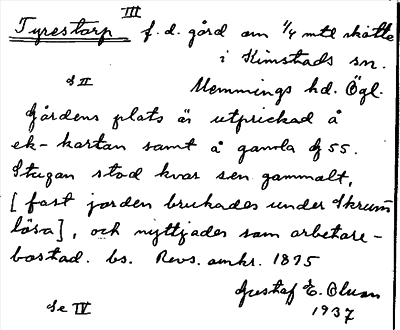 III
Tyrestorp f.d. gård om 1/4 mtl skatte
i Kimstads sn.
Se II Memmings hd. Ögl.
Gårdens plats är utprickad å
ek-kartan samt å gamla Gs 55.
Stugan stod kvar sen gammalt,
[fast jorden brukades under Skrum-
lösa], och nyttjades som arbetare-
bostad. bs. Revs. omkr. 1875
Gustaf E. Olsson
Se IV 1937